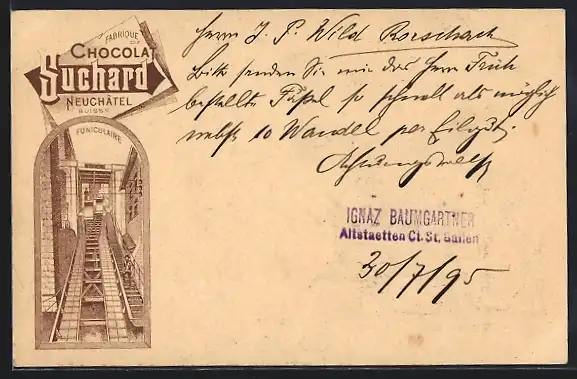 FABRIQUE
DE
CHOCOLAT
Suchard
NEUCHÂTEL
SUISSE
FUNICULAIRE
Herrn J. P. Wild Rorschach
Bitte senden Sie mir das Herrn Früh
bestellte so schnell als möglich
nebst 10 per Eilgut.
Achtungsvollst
IGNAZ BAUMGARTNER
Altstaetten Ct. St. Gallen
30/7/95